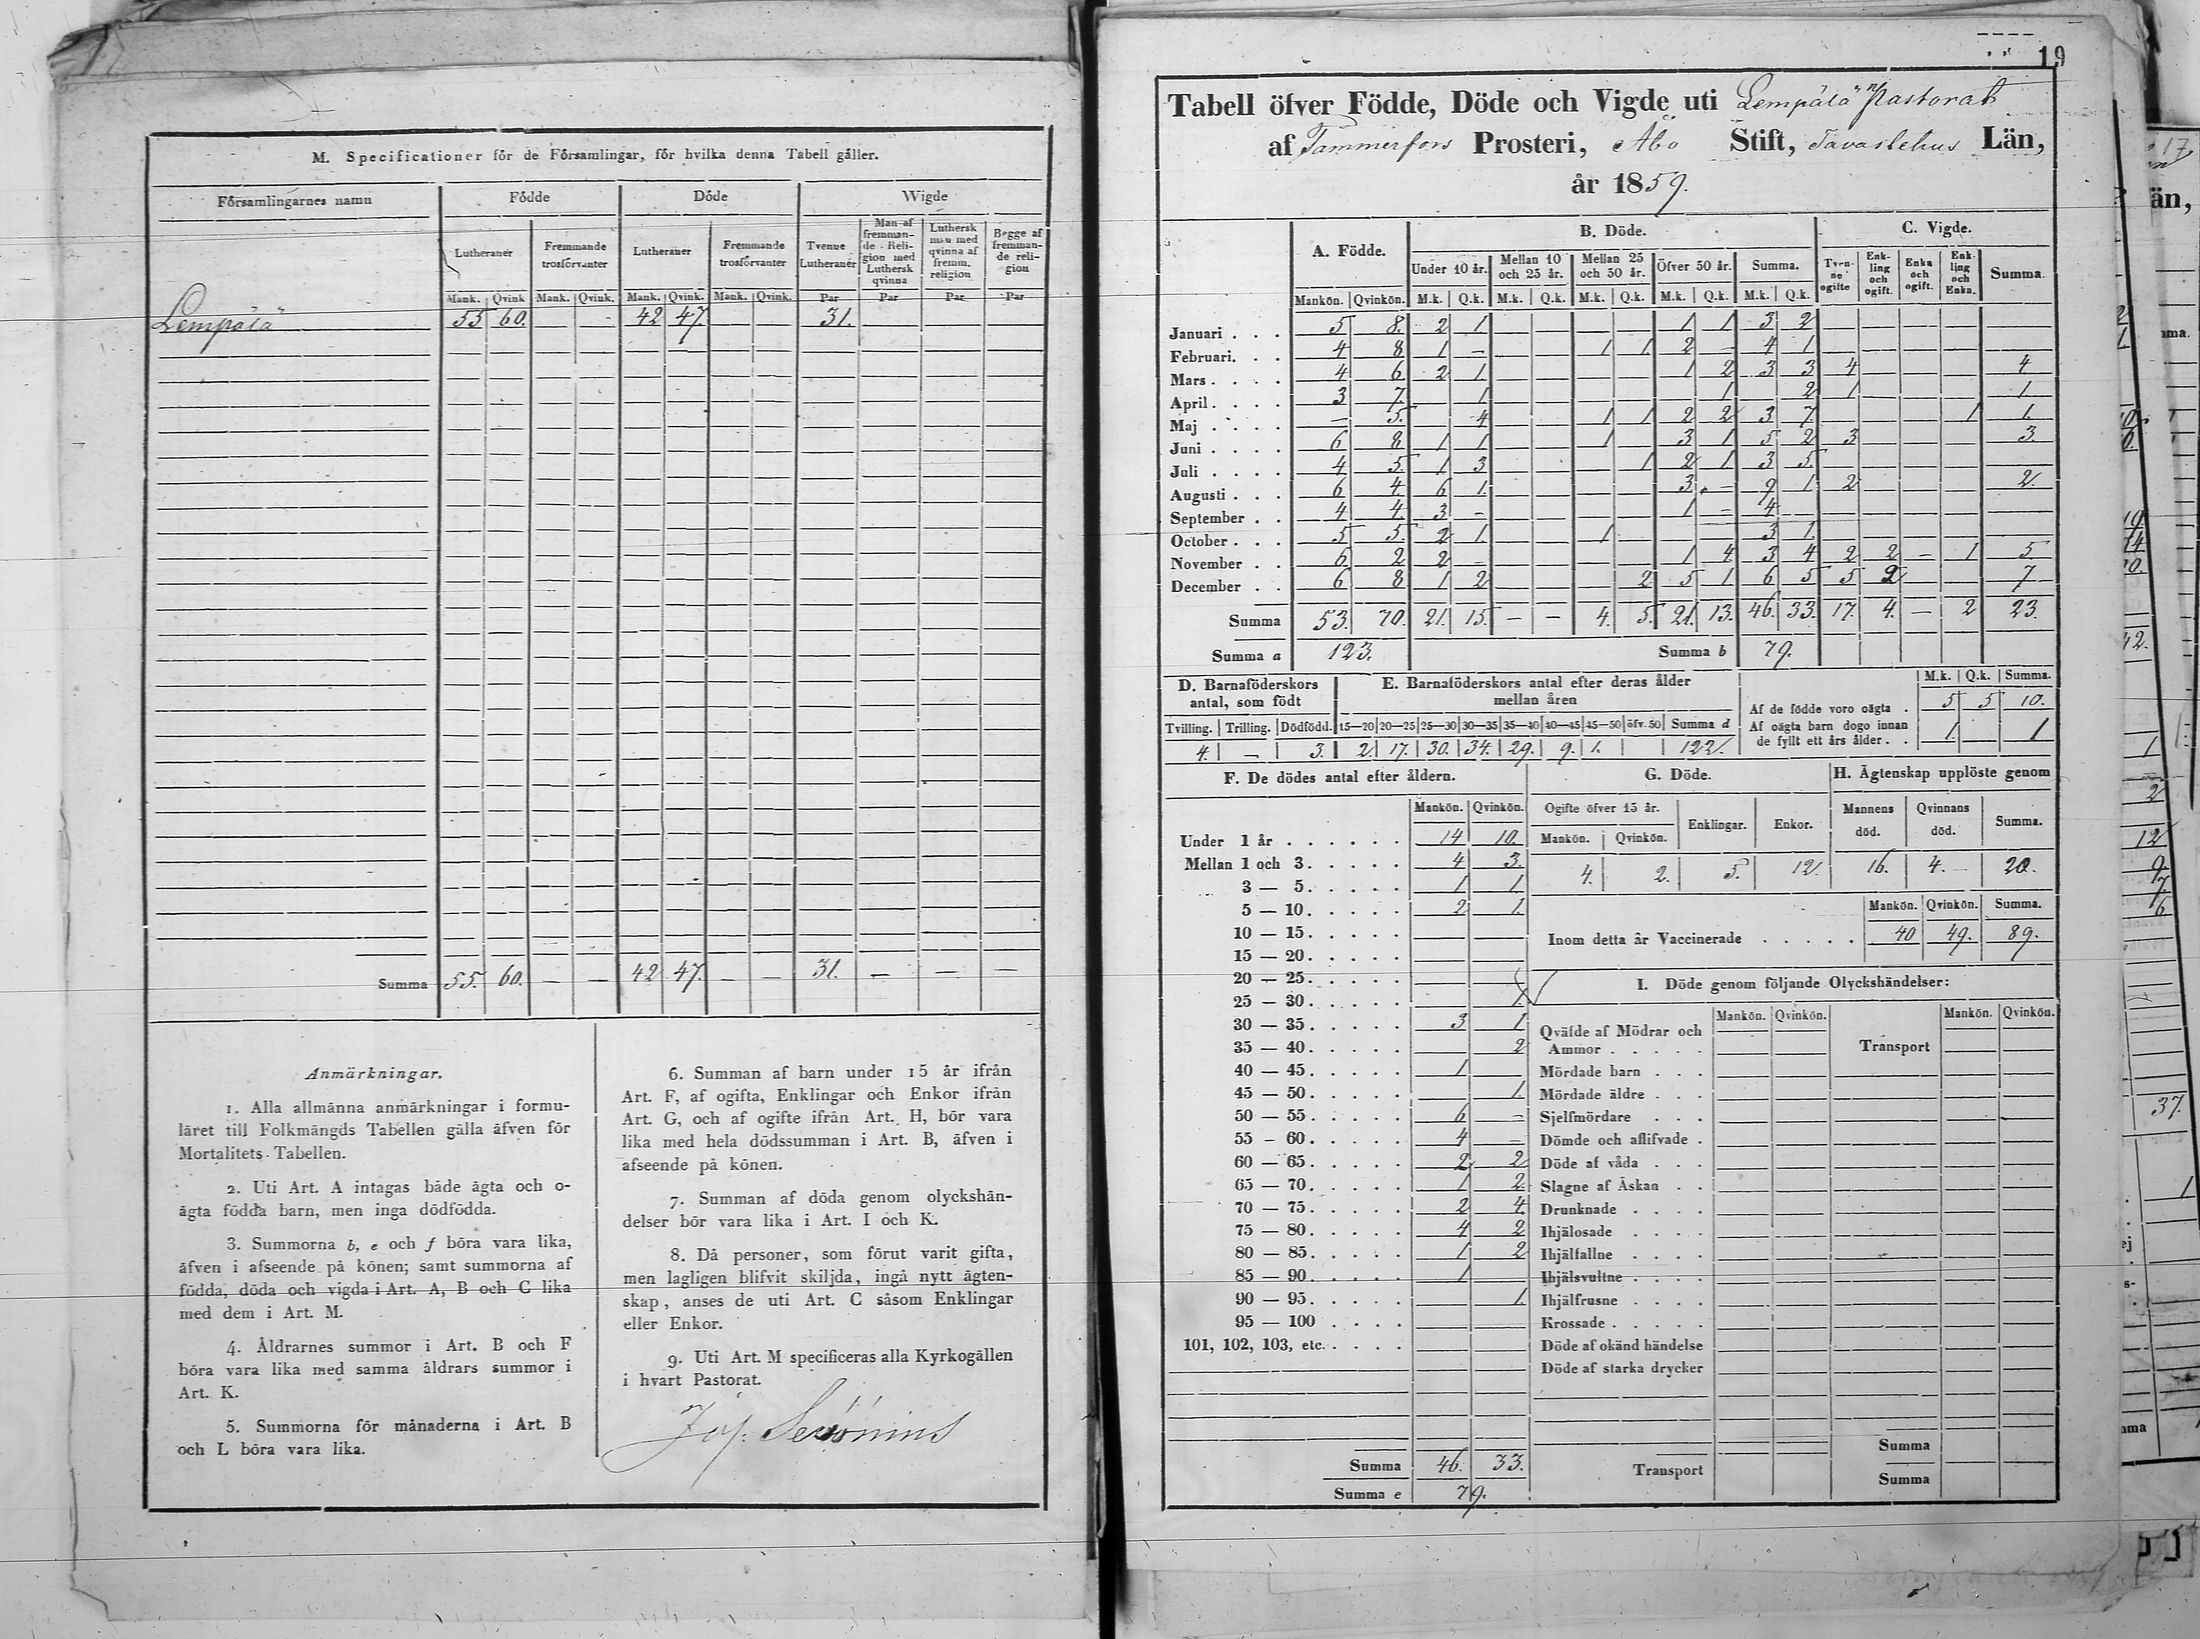 M. Specificationer för de Församlingar, för hvilka denna Tabell gäller.
Församlingarnes namn | Födde | Döde | Wigde
Lutheraner | Fremmande trosförvanter | Lutheraner | Fremmande trosförvanter | Tvenne Lutheraner | Man af fremmande Religion med Luthersk qvinna | Luthersk man med qvinna af fremm. religion | Begge af fremmande religion
Mank. | Qvink | Mank. | Qvink. | Mank. | Qvink. | Mank. | Qvink. | Par | Par | Par | Par
Lempälä 55 60. — — 42 47. 31.
Summa 55. 60. — — 42 47. — — 31. — — —
Anmärkningar.
1. Alla allmänna anmärkningar i formu-
läret till Folkmängds Tabellen gälla äfven för
Mortalitets-Tabellen.
2. Uti Art. A intagas både ägta och o-
ägta födda barn, men inga dödfödda.
3. Summorna b, e och f böra vara lika,
äfven i afseende på könen; samt summorna af
födda, döda och vigda i Art. A, B och C lika
med dem i Art. M.
4. Åldrarnes summor i Art. B och F
böra vara lika med samma åldrars summor i
Art. K.
5. Summorna för månaderna i Art. B
och L böra vara lika.
6. Summan af barn under 15 år ifrån
Art. F, af ogifta, Enklingar och Enkor ifrån
Art. G, och af ogifte ifrån Art. H, bör vara
lika med hela dödssumman i Art. B, äfven i
afseende på könen.
7. Summan af döda genom olyckshän-
delser bör vara lika i Art. I och K.
8. Då personer, som förut varit gifta,
men lagligen blifvit skiljda, ingå nytt ägten-
skap, anses de uti Art. C såsom Enklingar
eller Enkor.
9. Uti Art. M specificeras alla Kyrkogällen
i hvart Pastorat.
19
Tabell öfver Födde, Döde och Vigde uti Lempälä Pastorat
af Tammerfors Prosteri, Åbo Stift, Tavastehus Län,
år 1859.
A. Födde. | B. Döde. | C. Vigde.
Under 10 år. | Mellan 10 och 25 år. | Mellan 25 och 50 år. | Öfver 50 år. | Summa. | Tvenne ogifte | Enkling och ogift. | Enka och ogift. | Enkling och Enka. | Summa.
Mankön. | Qvinkön. | M.k. | Q.k. | M.k. | Q.k. | M.k. | Q.k. | M.k. | Q.k. | M.k. | Q.k.
Januari . . . 5 8. 2 1 — — — — 1 1 3 2 — — — — —
Februari. . . 4 8 1 — — — 1 1 2 — 4 1 — — — — —
Mars . . . . 4 6 2 1. — — — — 1 2 3 3 4 — — — 4
April . . . . 3 7. — 1 — — — — — 1 — 2 1 — — — 1.
Maj . . . . — 5. — 4 — — 1 1 2 2 3 7 — — — 1 1.
Juni . . . . 6 8 1 1 — — 1 — 3 1 5 2 3 — — — 3.
Juli . . . . 4 5. 1 3 — — — 1 2 1 3 5. — — — — —
Augusti . . . 6 4. 6 1. — — — — 3. — 9 1 2 — — — 2.
September . . 4 4. 3 — — — — — 1 — 4 — — — — — —
October . . . 5 5. 2 1 — — 1 — — — 3 1. — — — — —
November . . 6 2 2 — — — — — 1 4 3 4 2 2 — 1 5
December . . 6 8 1 2 — — — 2 5 1 6 5 5 2 — — 7
Summa 53. 70. 21. 15. — — 4. 5. 21. 13. 46. 33. 17. 4. — 2 23.
Summa a 123. Summa b 79.
D. Barnaföderskors antal, som födt
Tvilling. | Trilling. | Dödfödd.
4. — 3.
E. Barnaföderskors antal efter deras ålder mellan åren
15—20 | 20—25 | 25—30 | 30—35 | 35—40 | 40—45 | 45—50 | öfv. 50 | Summa d
2. 17. 30. 34. 29. 9. 1. 122.
M.k. | Q.k. | Summa.
Af de födde voro oägta . 5 5 10.
Af oägta barn dogo innan
de fyllt ett års ålder . . 1. — 1
F. De dödes antal efter åldern.
Mankön. | Qvinkön.
Under 1 år . . . . . . 14 10.
Mellan 1 och 3. . . . . 4 3.
3 — 5. . . . . 1 1
5 — 10. . . . . 2 1.
10 — 15. . . . .
15 — 20. . . . .
20 — 25. . . . .
25 — 30. . . . . 1.
30 — 35. . . . . 3 1
35 — 40. . . . . 2
40 — 45. . . . . 1
45 — 50. . . . . 1.
50 — 55. . . . . 6 —
55 — 60. . . . . 4 —
60 — 65. . . . . 2 2
65 — 70. . . . . 1 2.
70 — 75. . . . . 2 4.
75 — 80. . . . . 4 2
80 — 85. . . . . 1 2
85 — 90. . . . . 1
90 — 95. . . . . 1.
95 — 100 . . . .
101, 102, 103, etc. . . . .
Summa 46. 33.
Summa e 79.
G. Döde.
Ogifte öfver 15 år. | Enklingar. | Enkor.
Mankön. | Qvinkön.
4. 2. 5. 12.
H. Ägtenskap upplöste genom
Mannens död. | Qvinnans död. | Summa.
16. 4. 20.
Mankön. | Qvinkön. | Summa.
Inom detta år Vaccinerade . . . . . 40 49. 89.
I. Döde genom följande Olyckshändelser:
Mankön. | Qvinkön. | Mankön. | Qvinkön.
Qväfde af Mödrar och
Ammor . . . . .
Transport
Mördade barn . . .
Mördade äldre . . .
Sjelfmördare . . .
Dömde och aflifvade .
Döde af våda . . .
Slagne af Åskan . .
Drunknade . . . .
Ihjälosade . . . .
Ihjälfallne . . . .
Ihjälsvultne . . . .
Ihjälfrusne . . . .
Krossade . . . . .
Döde af okänd händelse
Döde af starka drycker
Summa
Transport
Summa